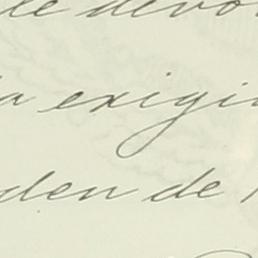 de devo
a exigi
den de